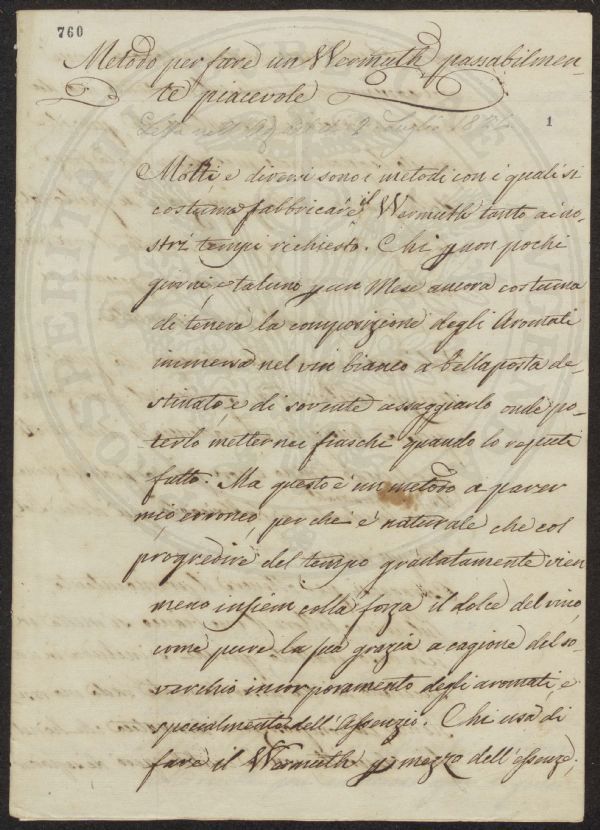 760
Metodo per fare un Wermuth passabilmen-
te piacevole
Letta nell' del 2 Luglio
1
Molti e diversi sono i metodi con i quali si
costuma fabbricare il Wermuth tanto ai no-
stri tempi richiesto. Chi p non pochi
giorni e taluno p un Mese ancora costuma
di tenere la composizione degli Aromati
immersa nel vin bianco a bella posta de-
stinato, e di sovente assaggiarlo onde po-
terlo metter nei fiaschi quando lo reputi
fatto. Ma questo è un metodo a parer
mio erroneo, perchè è naturale che col
progredire del tempo gradatamente vien
meno insiem colla forza il dolce del vino,
come pure la sua grazia a cagione del so-
varchio incorporamento degli aromati, e
specialmente dell'Assenzio. Chi usa di
fare il Wermuth p mezzo dell'essenze,